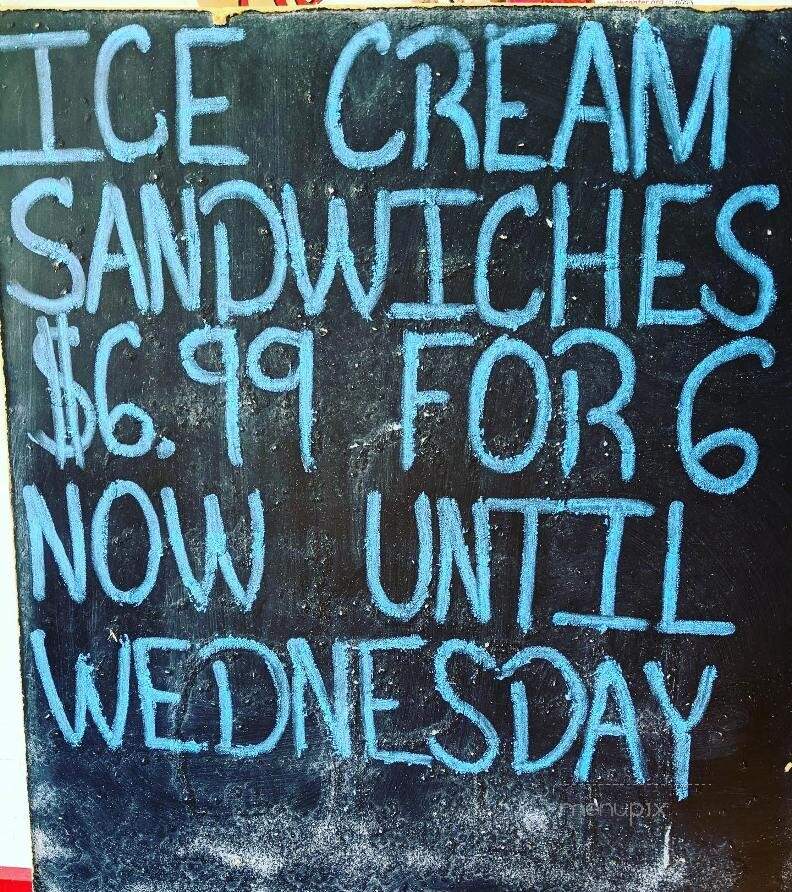 ICE CREAM
SANDWICHES
$6.99 FOR 6
NOW UNTIL
WEDNESDAY
menupix